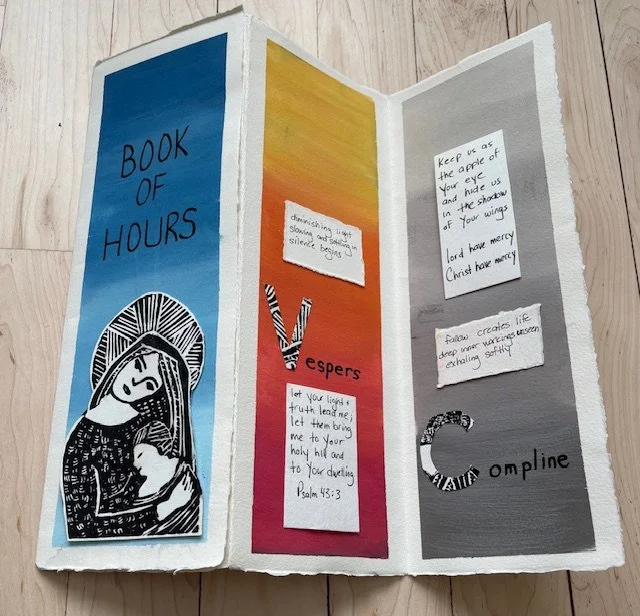 BOOK
OF
HOURS
diminishing light
slowing and settling in
silence begins
Vespers
let your light &
truth lead me;
let them bring
me to your
holy hill and
to your dwelling
Psalm 43:3
Keep us as
the apple of
your eye
and hide us
in the shadow
of your wings
lord have mercy
Christ have mercy
fallow creates life
deep inner workings unseen
exhaling softly
Compline